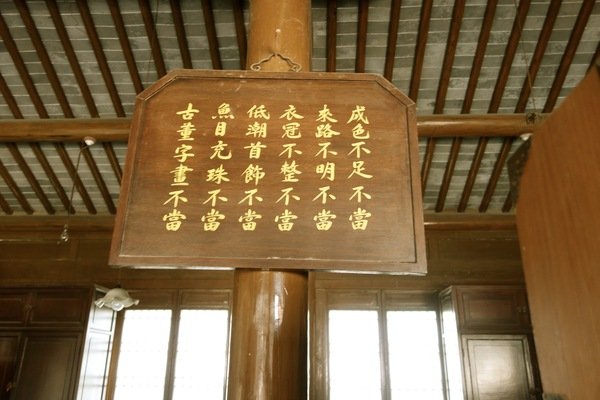 成色不足不當
来路不明不當
衣冠不整不當
低潮首飾不當
魚目充珠不當
古董字畫不當